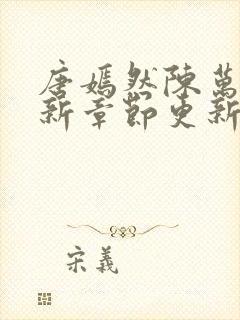 唐嫣然陳萬
新章節更新
宋義